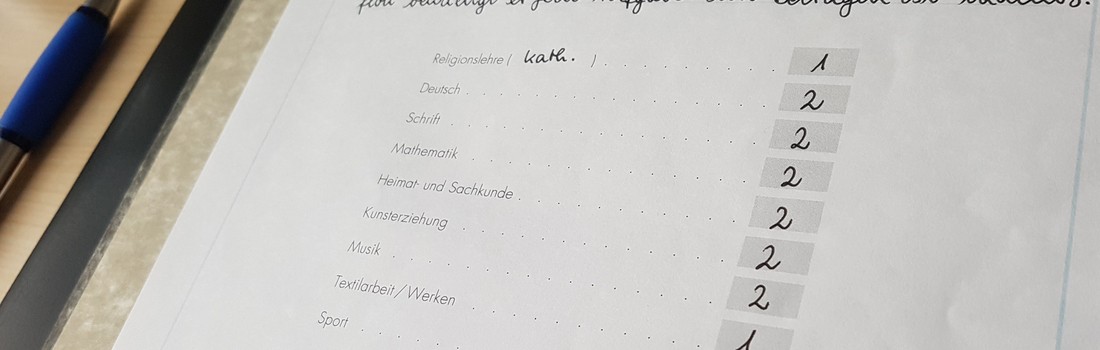 Religionslehre ( kath. ) . . . . . . . . . . 1
Deutsch . . . . . . . . . . . . . . 2
Schrift . . . . . . . . . . . . . . 2
Mathematik . . . . . . . . . . . . 2
Heimat- und Sachkunde . . . . . . . . . . 2
Kunsterziehung . . . . . . . . . . . . 2
Musik . . . . . . . . . . . . . . 2
Textilarbeit/Werken . . . . . . . . . . 1
Sport . . . .